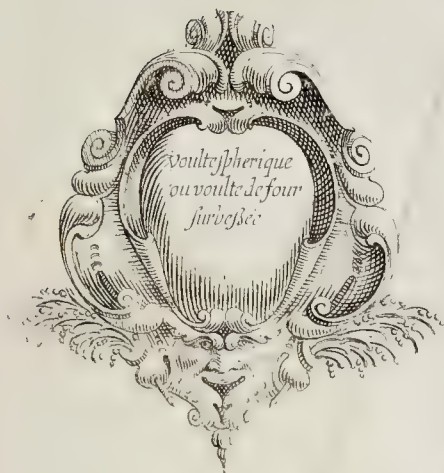 voulte ſpherique
ou voulte de four
ſurbeſſée